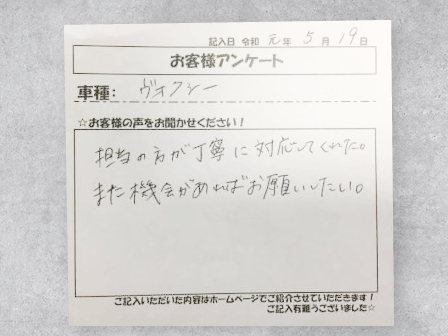 記入日 令和 元年 5月 19日
お客様アンケート
車種: ヴォクシー
☆お客様の声をお聞かせください！
担当の方が丁寧に対応してくれた。
また機会があればお願いしたい。
ご記入いただいた内容はホームページでご紹介させていただきます！
ご記入有難うございました☆